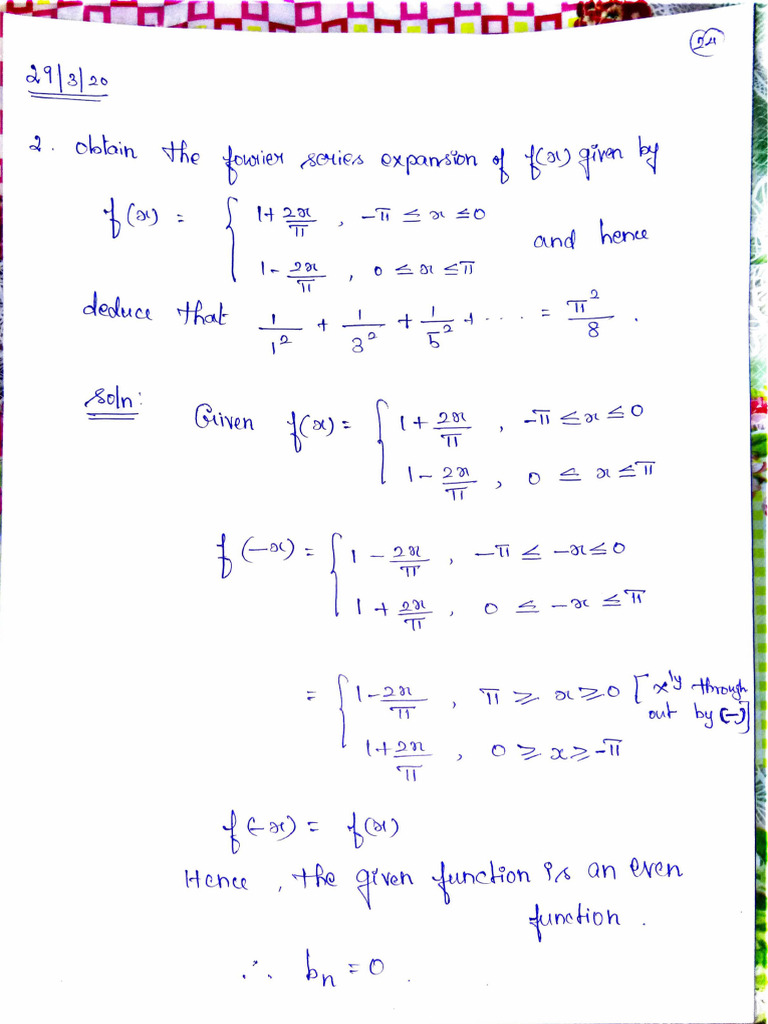 24
29/3/20
2. obtain the fourier series expansion of f(x) given by
f(x) = { 1+ 2x/π , -π ≤ x ≤ 0
1- 2x/π , 0 ≤ x ≤ π and hence
deduce that 1/1² + 1/3² + 1/5² + .... = π²/8 .
Soln: Given f(x) = { 1 + 2x/π , -π ≤ x ≤ 0
1 - 2x/π , 0 ≤ x ≤ π
f(-x) = { 1 - 2x/π , -π ≤ -x ≤ 0
1 + 2x/π , 0 ≤ -x ≤ π
= { 1 - 2x/π , π ≥ x ≥ 0 [ xly through
out by (-)]
1 + 2x/π , 0 ≥ x ≥ -π
f(-x) = f(x)
Hence , the given function is an even
function .
∴ bn = 0 .